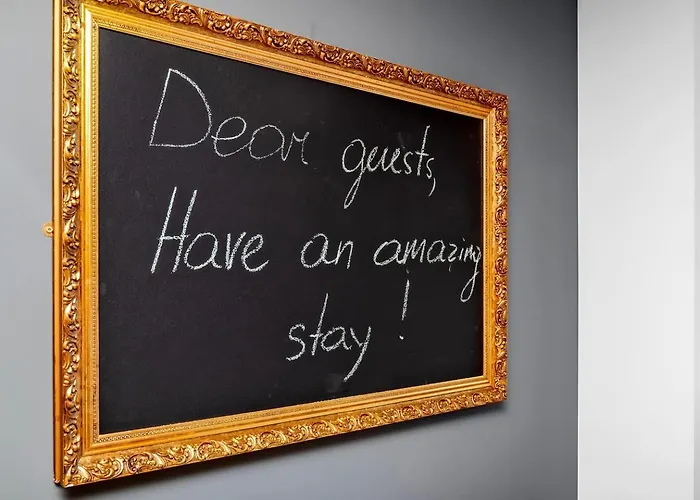 Dear guests,
Have an amazing
stay!